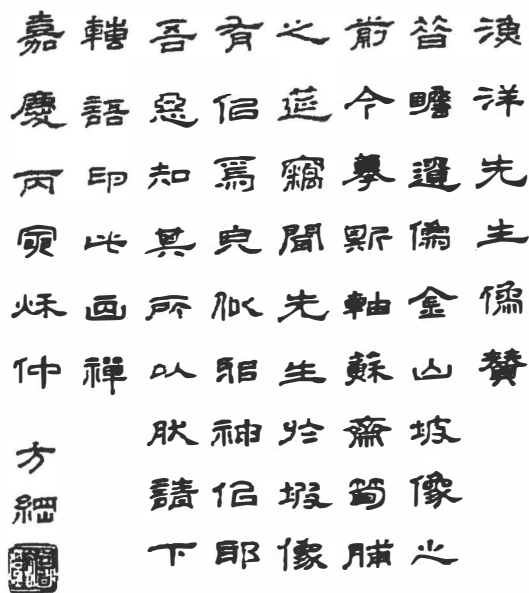 漁洋先生像贊
昔瞻遺像金山坡像之
前今摹斯軸蘇齋笥脯
之莚竊聞先生於坡像
有佀爲皃似邪神佀耶
吾惡知其所以肰請下
轉語印此画禪
嘉慶丙寅秌仲
方綱